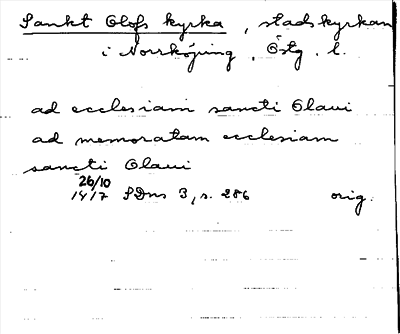 Sankt Olofs kyrka, stadskyrkan
i Norrköping, Östg. l.
ad ecclesiam sancti Olaui
ad memoratam ecclesiam
sancti Olaui
26/10
1417 SDns 3, s. 286 orig.